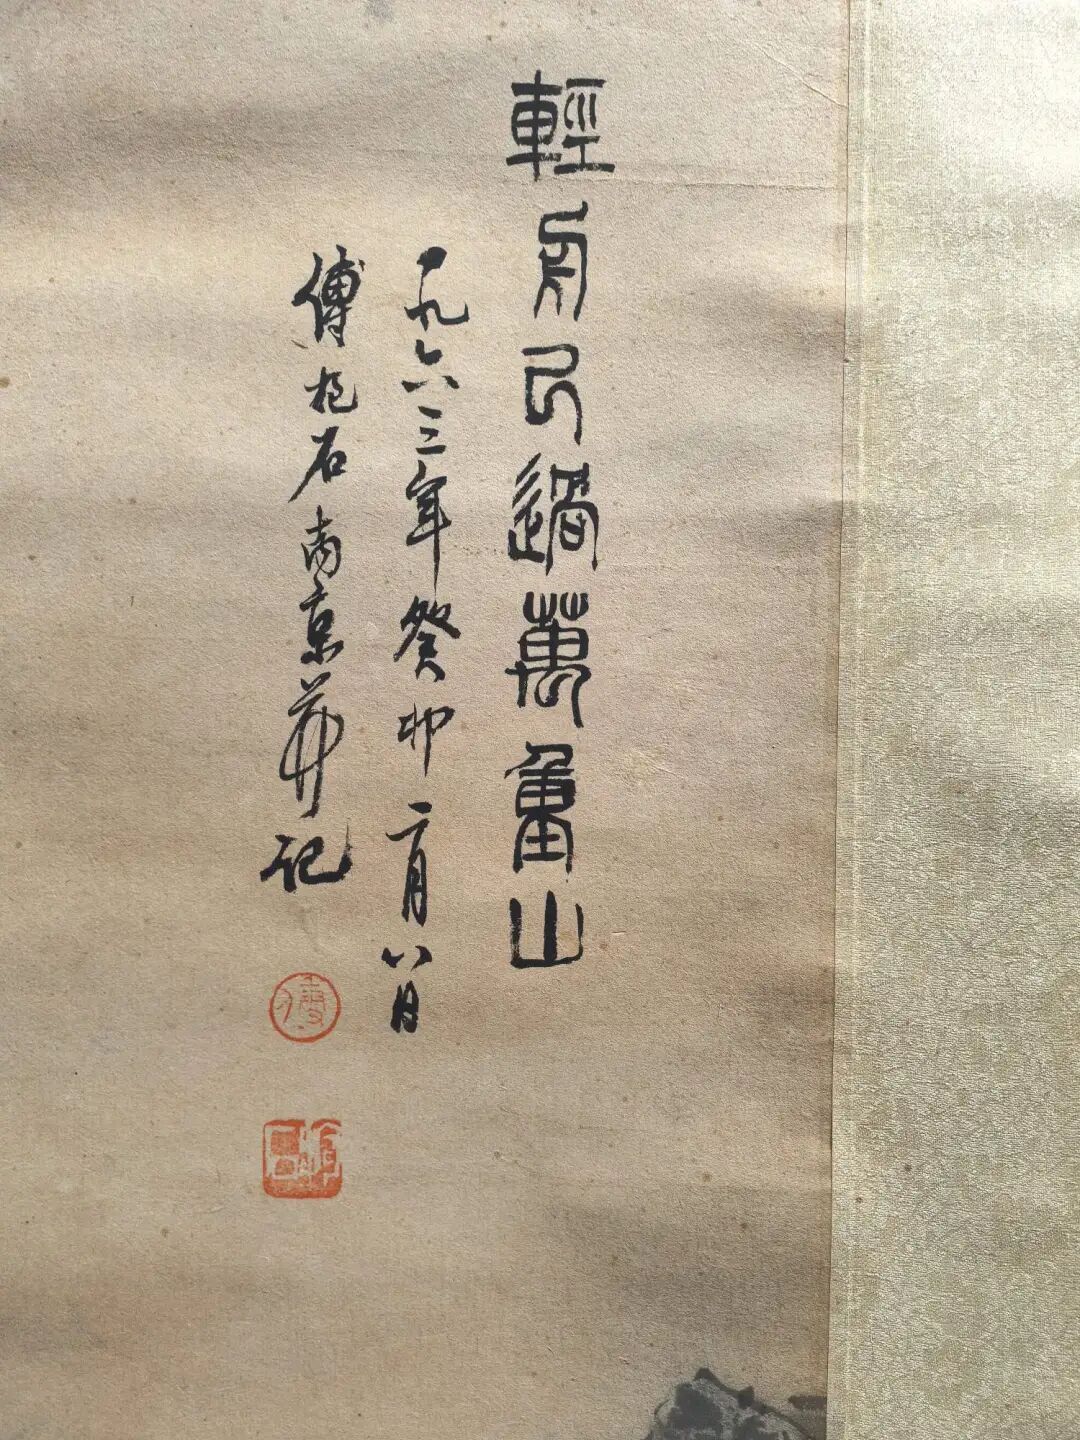 輕舟已過萬重山
一九六三年癸卯二月八日
傅抱石南京并記
傅